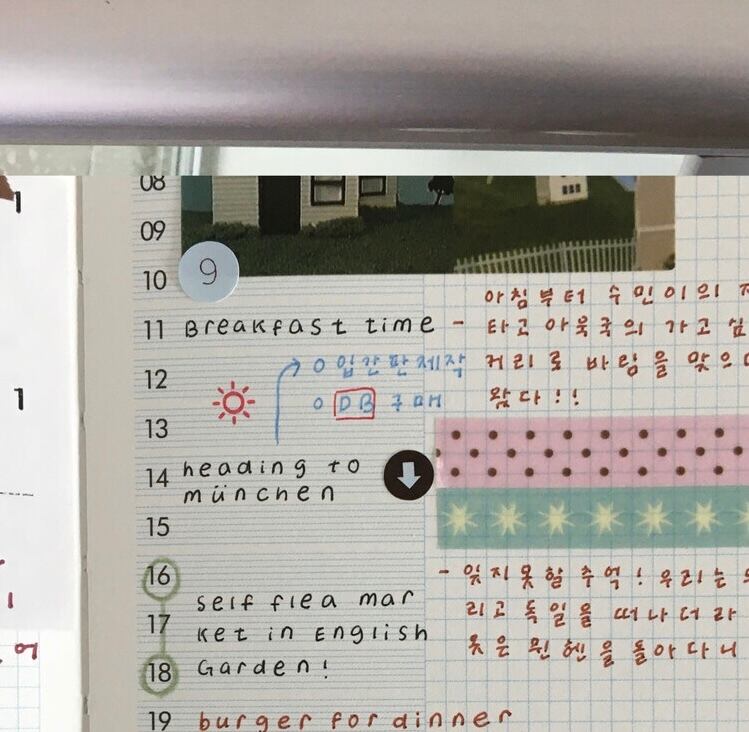 08
1
09
9
10
아침부터 수민이의
11 Breakfast time - 타고 아욱국의 가고
12 o 입간판제작 거리로 바람을 맞으
1
o DB 구매 왔다!!
13
14 heading to
münchen
15
16 - 잊지 못할 추억! 우리는
self flea mar
리고 독일을 떠나더라
17
ket in English
옷은 뮌헨을 돌아다니
18 Garden!
어
19 burger for dinner